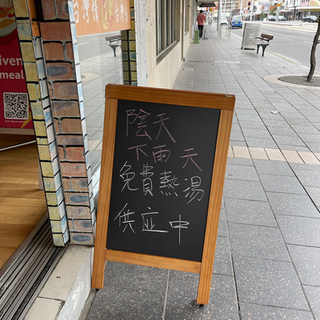 陰天
下雨天
免費熱湯
供应中
iver
meal